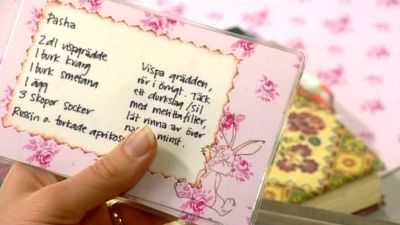 Pasha
2 dl vispgrädde
1 burk kvarg
1 burk smetana
1 ägg
3 skopor socker
Russin o. torkade aprikos
Vispa grädden,
rör i övrigt. Täck
ett durkslag/sil
med melittafilter,
låt rinna av över
minst.